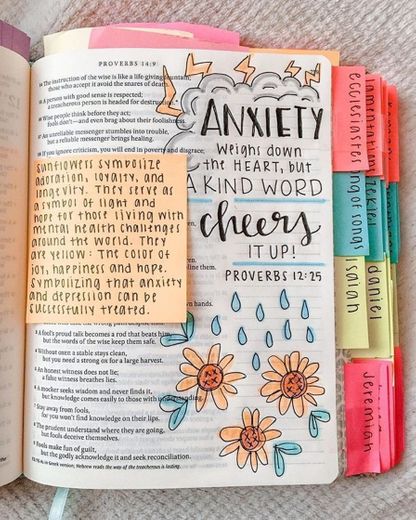 PROVERBS 14:9
The instruction of the wise is like a life-giving fountain;
those who accept it avoid the snares of death.
A person with good sense is respected;
a treacherous person is headed for destruction.
Wise people think before they act;
fools don't—and even brag about their foolishness.
An unreliable messenger stumbles into trouble,
but a reliable messenger brings healing.
If you ignore criticism, you will end in poverty and disgrace;
Sunflowers symbolize
adoration, loyalty, and
longevity. They serve as
a symbol of light and
hope for those living with
mental health challenges
around the world. They
are yellow: The color of
joy, happiness and hope.
Symbolizing that anxiety
and depression can be
successfully treated.
ANXIETY
weighs down
the HEART, but
A KIND WORD
cheers
IT UP!
PROVERBS 12:25
A fool's proud talk becomes a rod that beats him,
but the words of the wise keep them safe.
Without oxen a stable stays clean,
but you need a strong ox for a large harvest.
An honest witness does not lie;
a false witness breathes lies.
A mocker seeks wisdom and never finds it,
but knowledge comes easily to those with understanding.
Stay away from fools,
for you won't find knowledge on their lips.
The prudent understand where they are going,
but fools deceive themselves.
Fools make fun of guilt,
but the godly acknowledge it and seek reconciliation.
As in Greek version; Hebrew reads the way of the treacherous is lasting.
ecclesiastes
lamentations
song of songs
ezekiel
isaiah
daniel
jeremiah